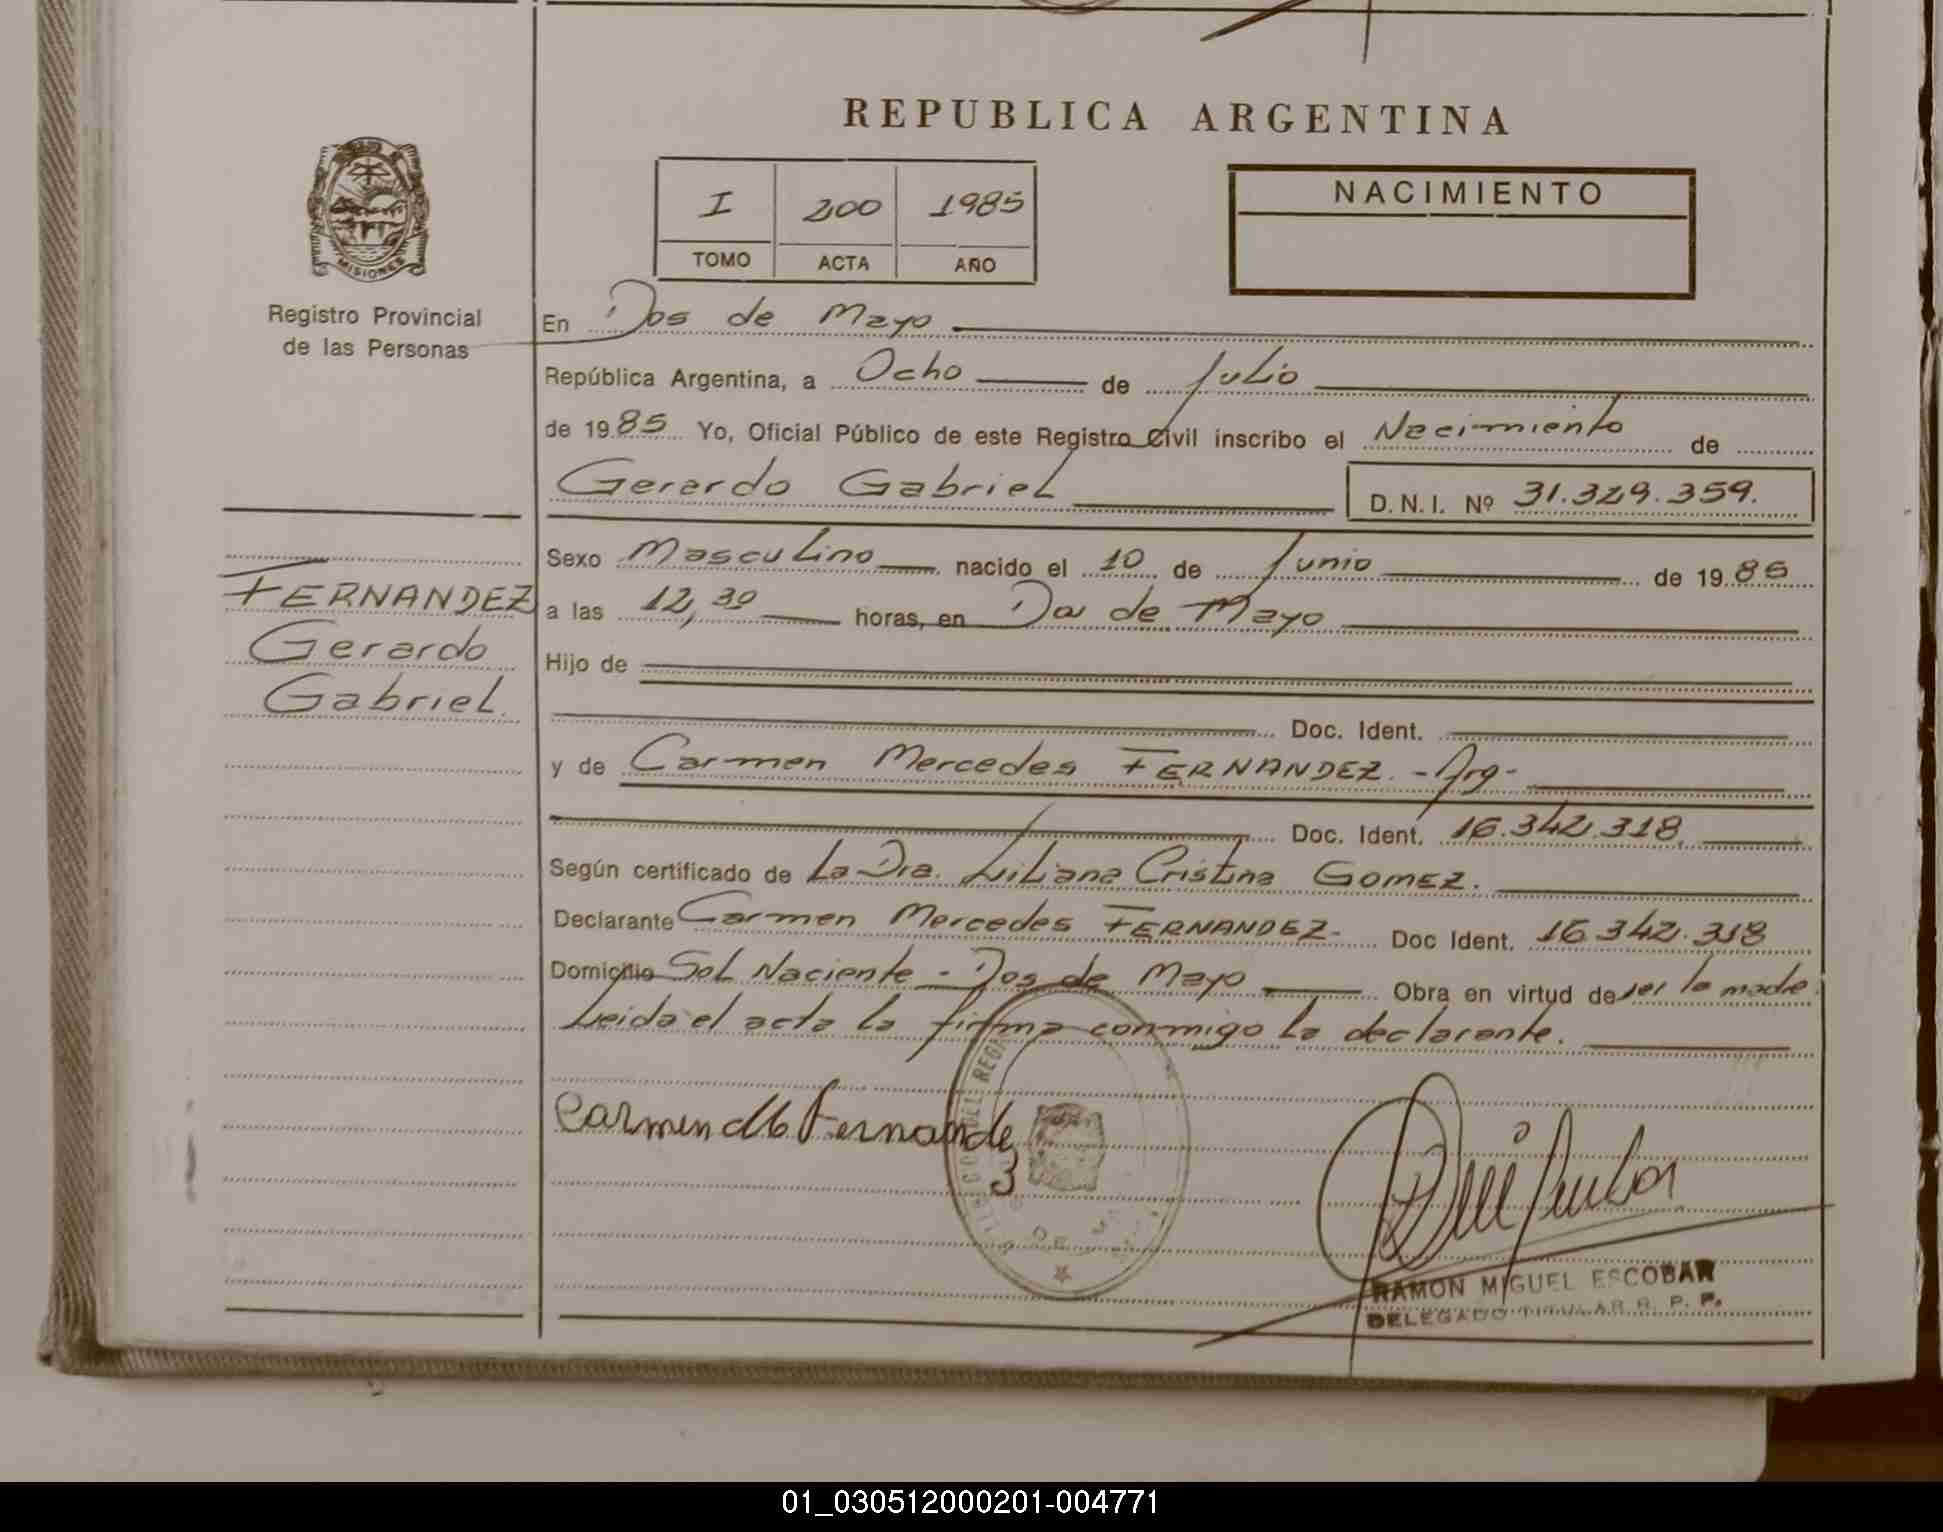 REPUBLICA ARGENTINA
MISIONES
Registro Provincial
de las Personas
I 200 1985
TOMO ACTA AÑO
NACIMIENTO
En Dos de Mayo
República Argentina, a Ocho de Julio
de 1985 Yo, Oficial Público de este Registro Civil inscribo el Nacimiento de
Gerardo Gabriel D.N.I. Nº 31.329.359.
Sexo Masculino nacido el 10 de Junio de 1985
a las 12,30 horas, en Dos de Mayo
Hijo de
Doc. Ident.
y de Carmen Mercedes FERNANDEZ. - Arg -
Doc. Ident. 16.342.318.
Según certificado de La Dra. Liliana Cristina GOMEZ.
Declarante Carmen Mercedes FERNANDEZ- Doc Ident. 16.342.318
Domicilio Sol Naciente - Dos de Mayo Obra en virtud de ser la madre.
Leida el acta la firma conmigo la declarante.
FERNANDEZ
Gerardo
Gabriel.
Carmen M Fernande
z
RAMON MIGUEL ESCOBAR
DELEGADO TITULAR R. P. P.
01_030512000201-004771